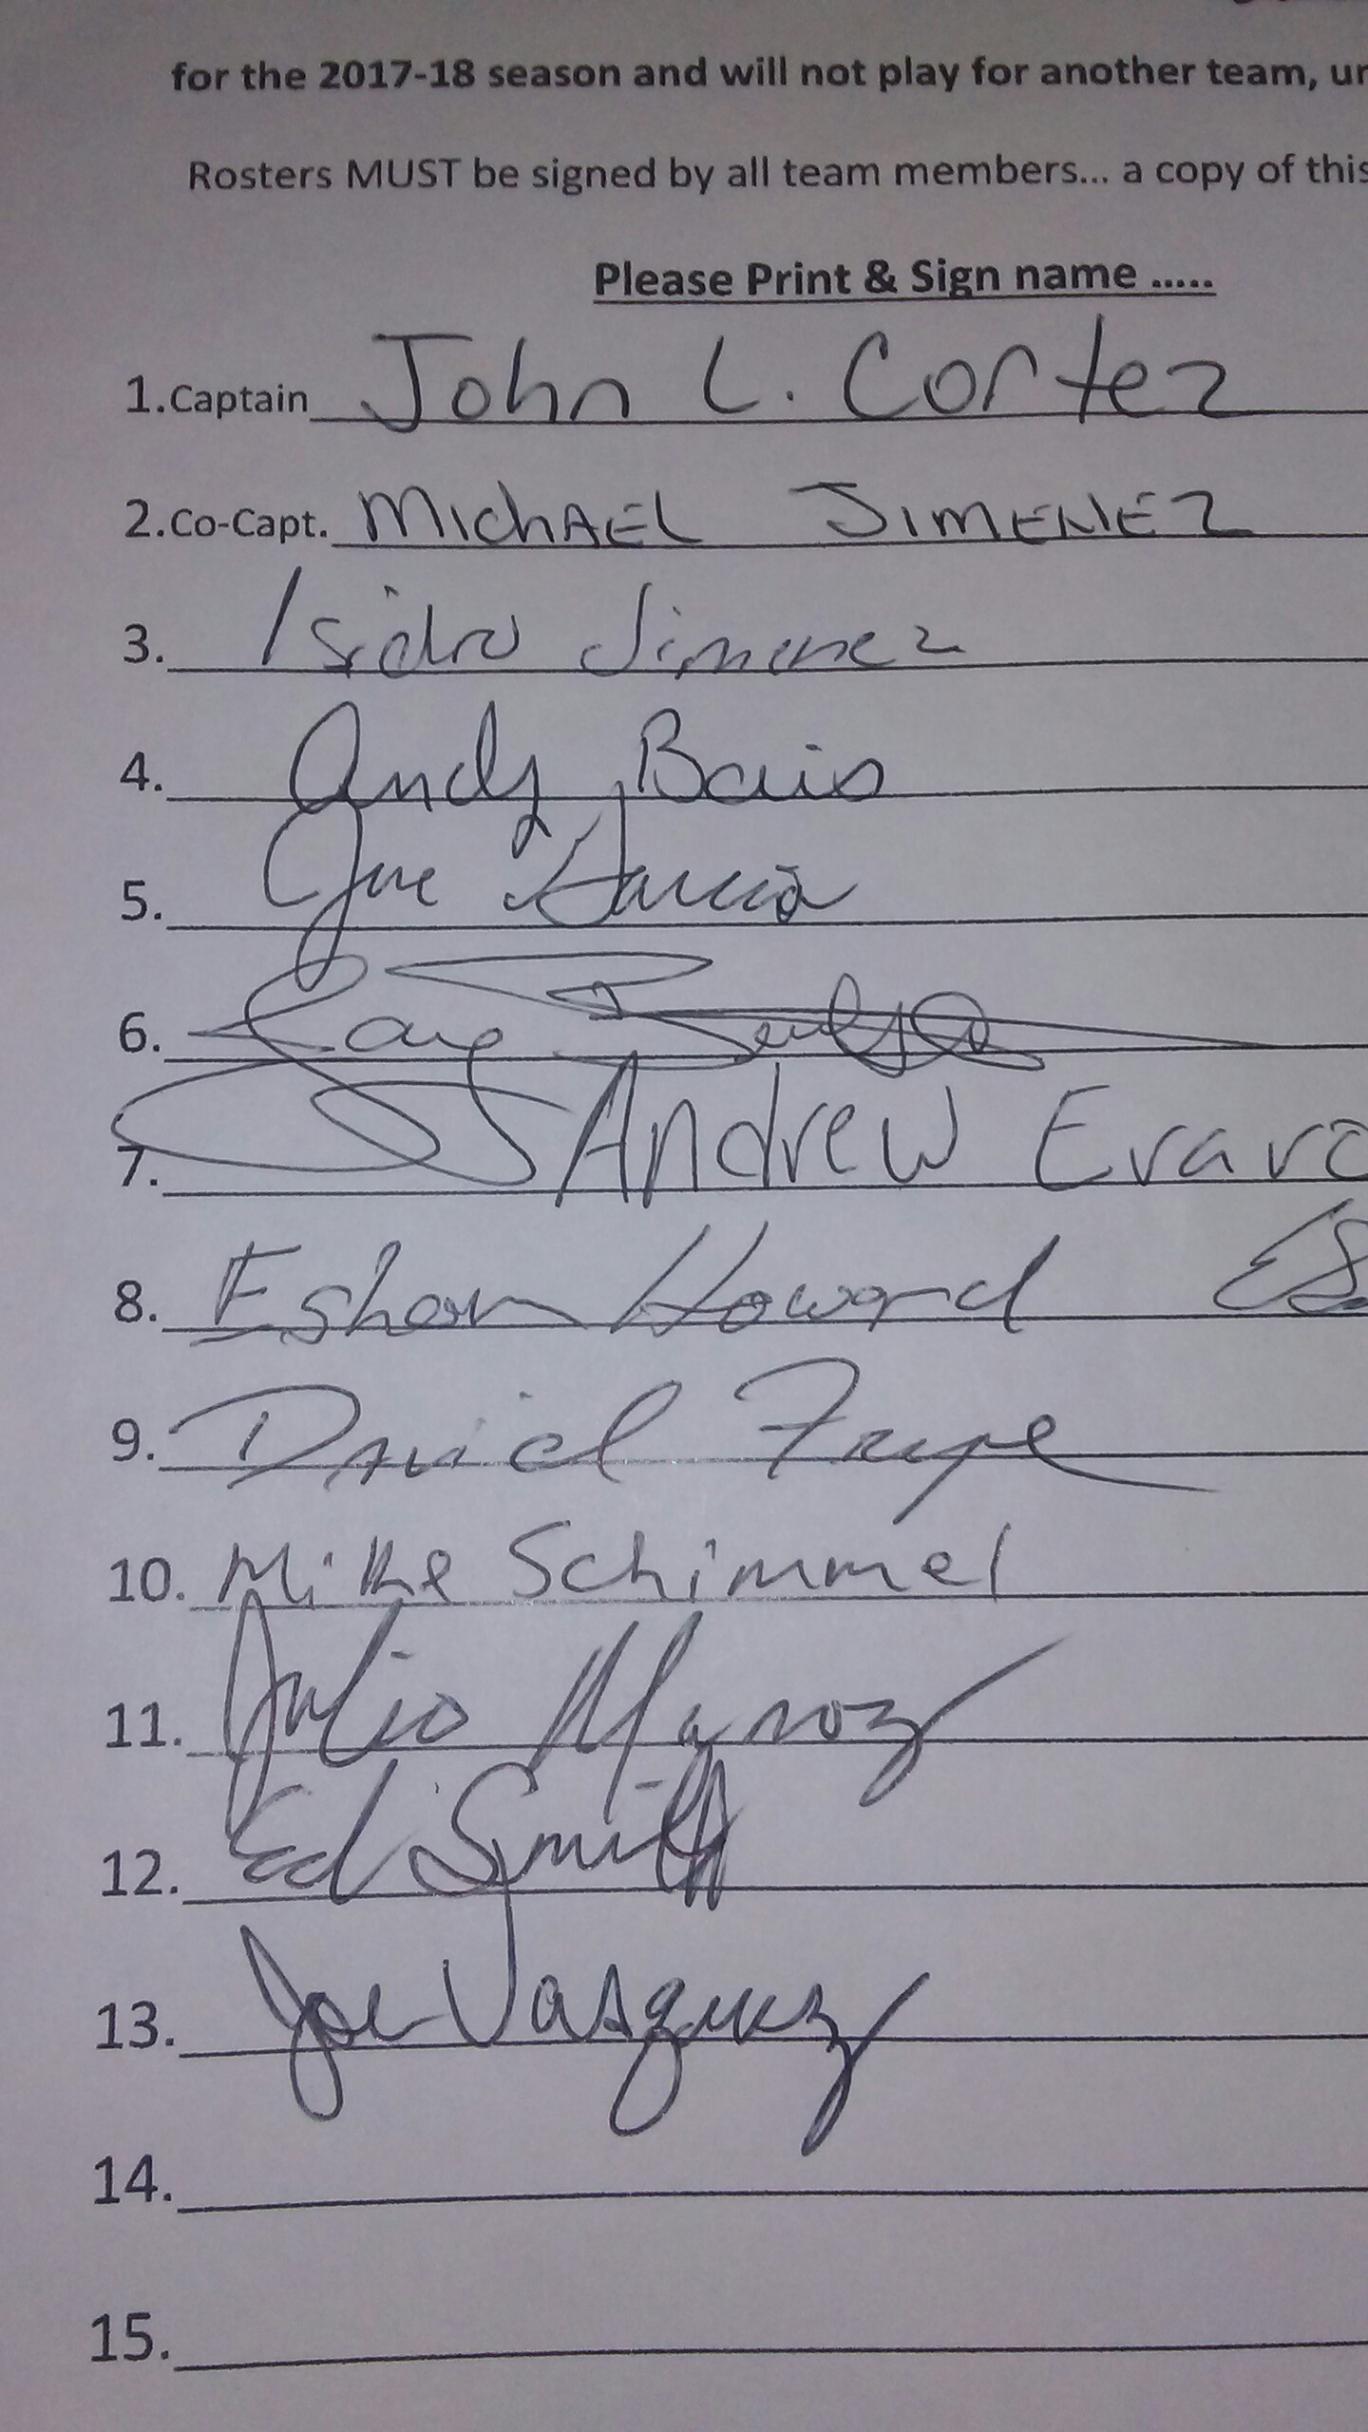 for the 2017-18 season and will not play for another team,
Rosters MUST be signed by all team members... a copy of this
Please Print & Sign name .....
1.Captain John L. Cortez
2.Co-Capt. MIChAEL JIMENEZ
3. Isidro Jimenez
4. Andy Baio
5. Joe Garcia
6.
7. Andrew
8. Esham Howard
9. Daniel Frype
10. Mike Schimmel
11. Julio Munoz
12. Ed Smith
13. Joe Vasquez
14.
15.